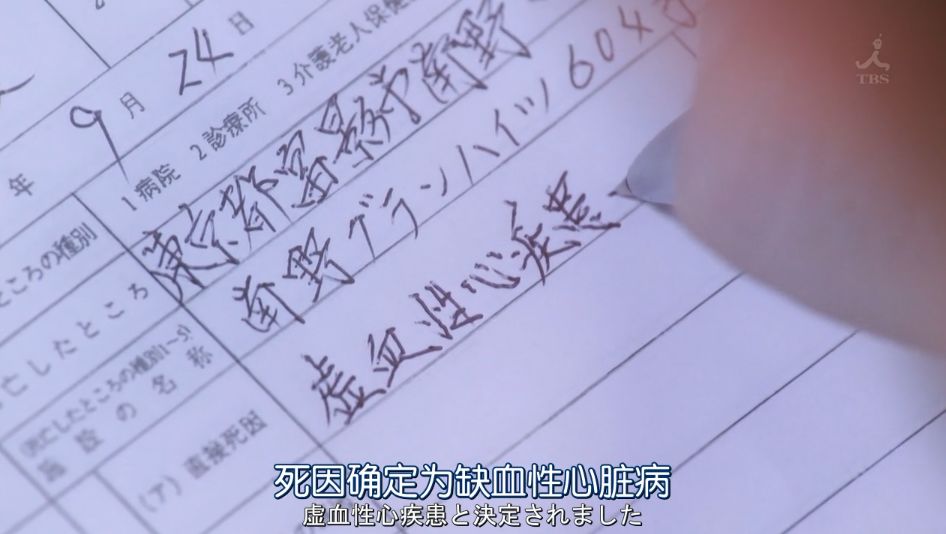 TBS
年 9 月 24 日
ところの種別 1 病院 2 診療所 3 介護老人保健
亡したところ 東京都富景市南野
南野グランハイツ604号
(死亡したところの種別1~5)
施設の名称
(ア) 直接死因 虚血性心疾患
死因确定为缺血性心脏病
虚血性心疾患と決定されました